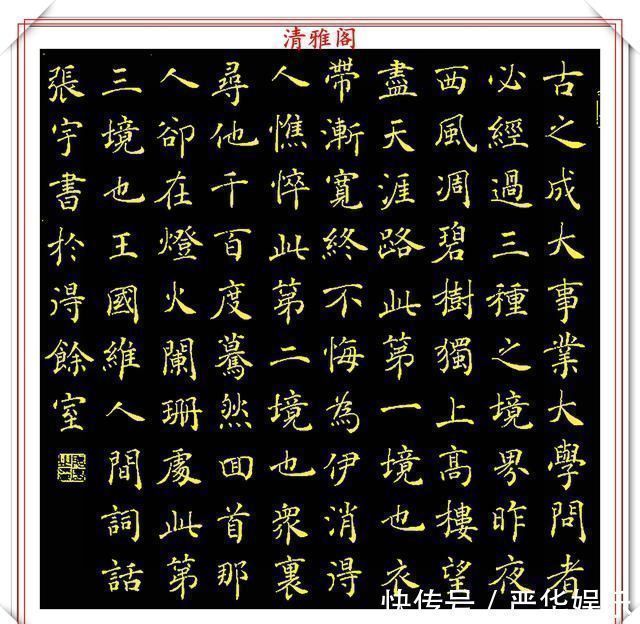 清雅阁
古之成大事業大學問者
必經過三種之境界昨夜
西風凋碧樹獨上高樓望
盡天涯路此第一境也衣
帶漸寬終不悔為伊消得
人憔悴此第二境也衆裏
尋他千百度驀然回首那
人卻在燈火闌珊處此第
三境也王國維人間詞話
張宇書於得餘室
快传号/严华娱